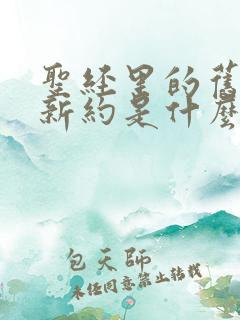 聖経里的舊
新約是什麼
包天師
未经同意禁止转载